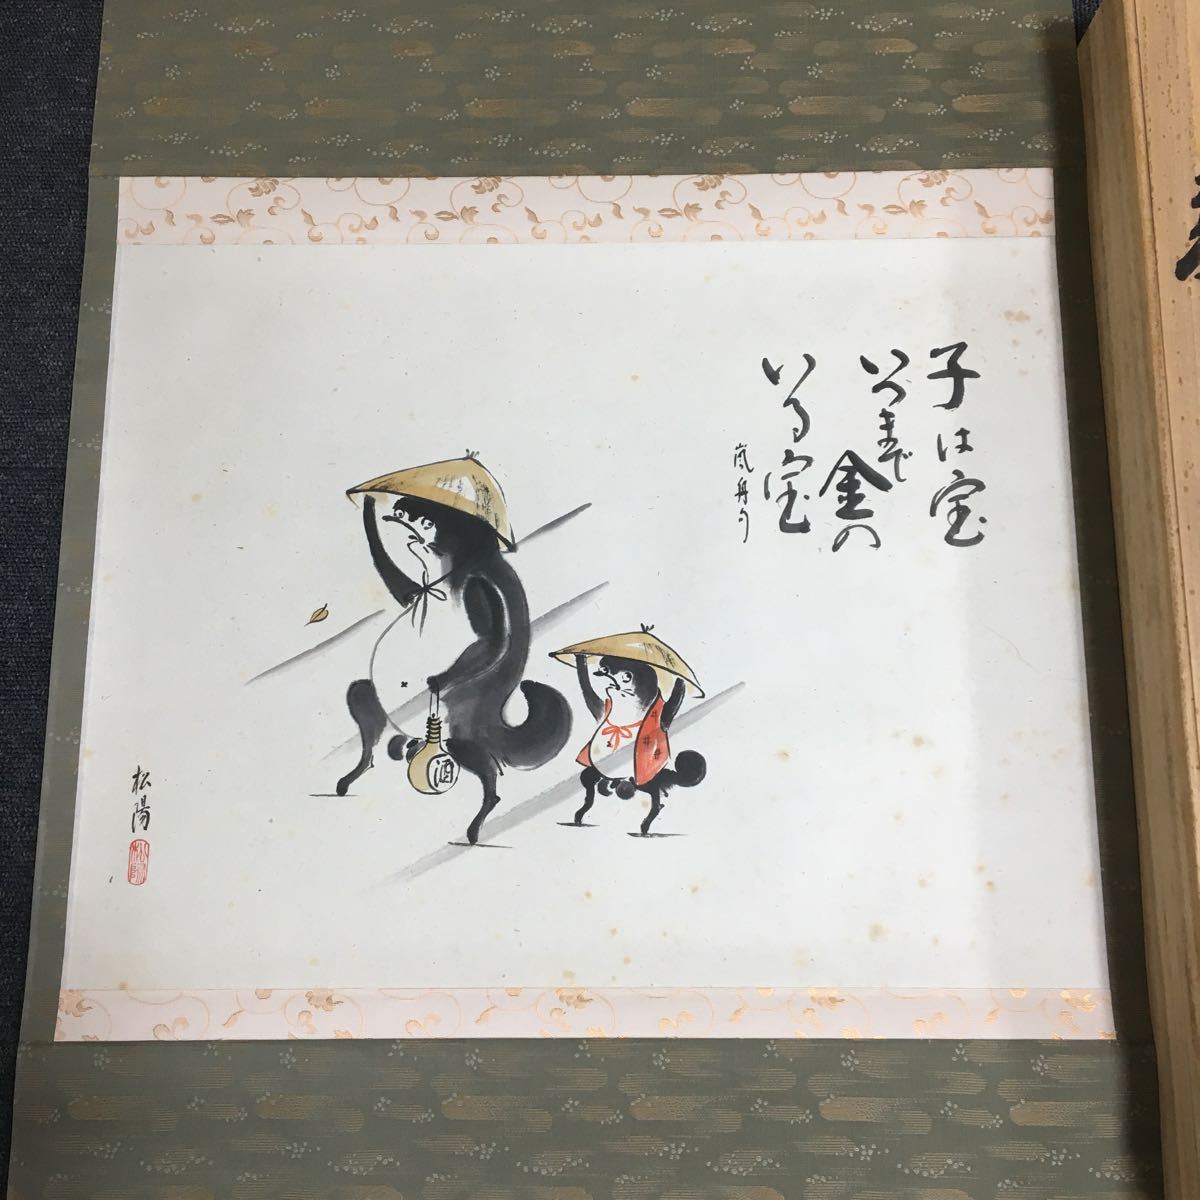 子は宝
いつまで
金の
いる宝
嵐舟句
酒
松陽